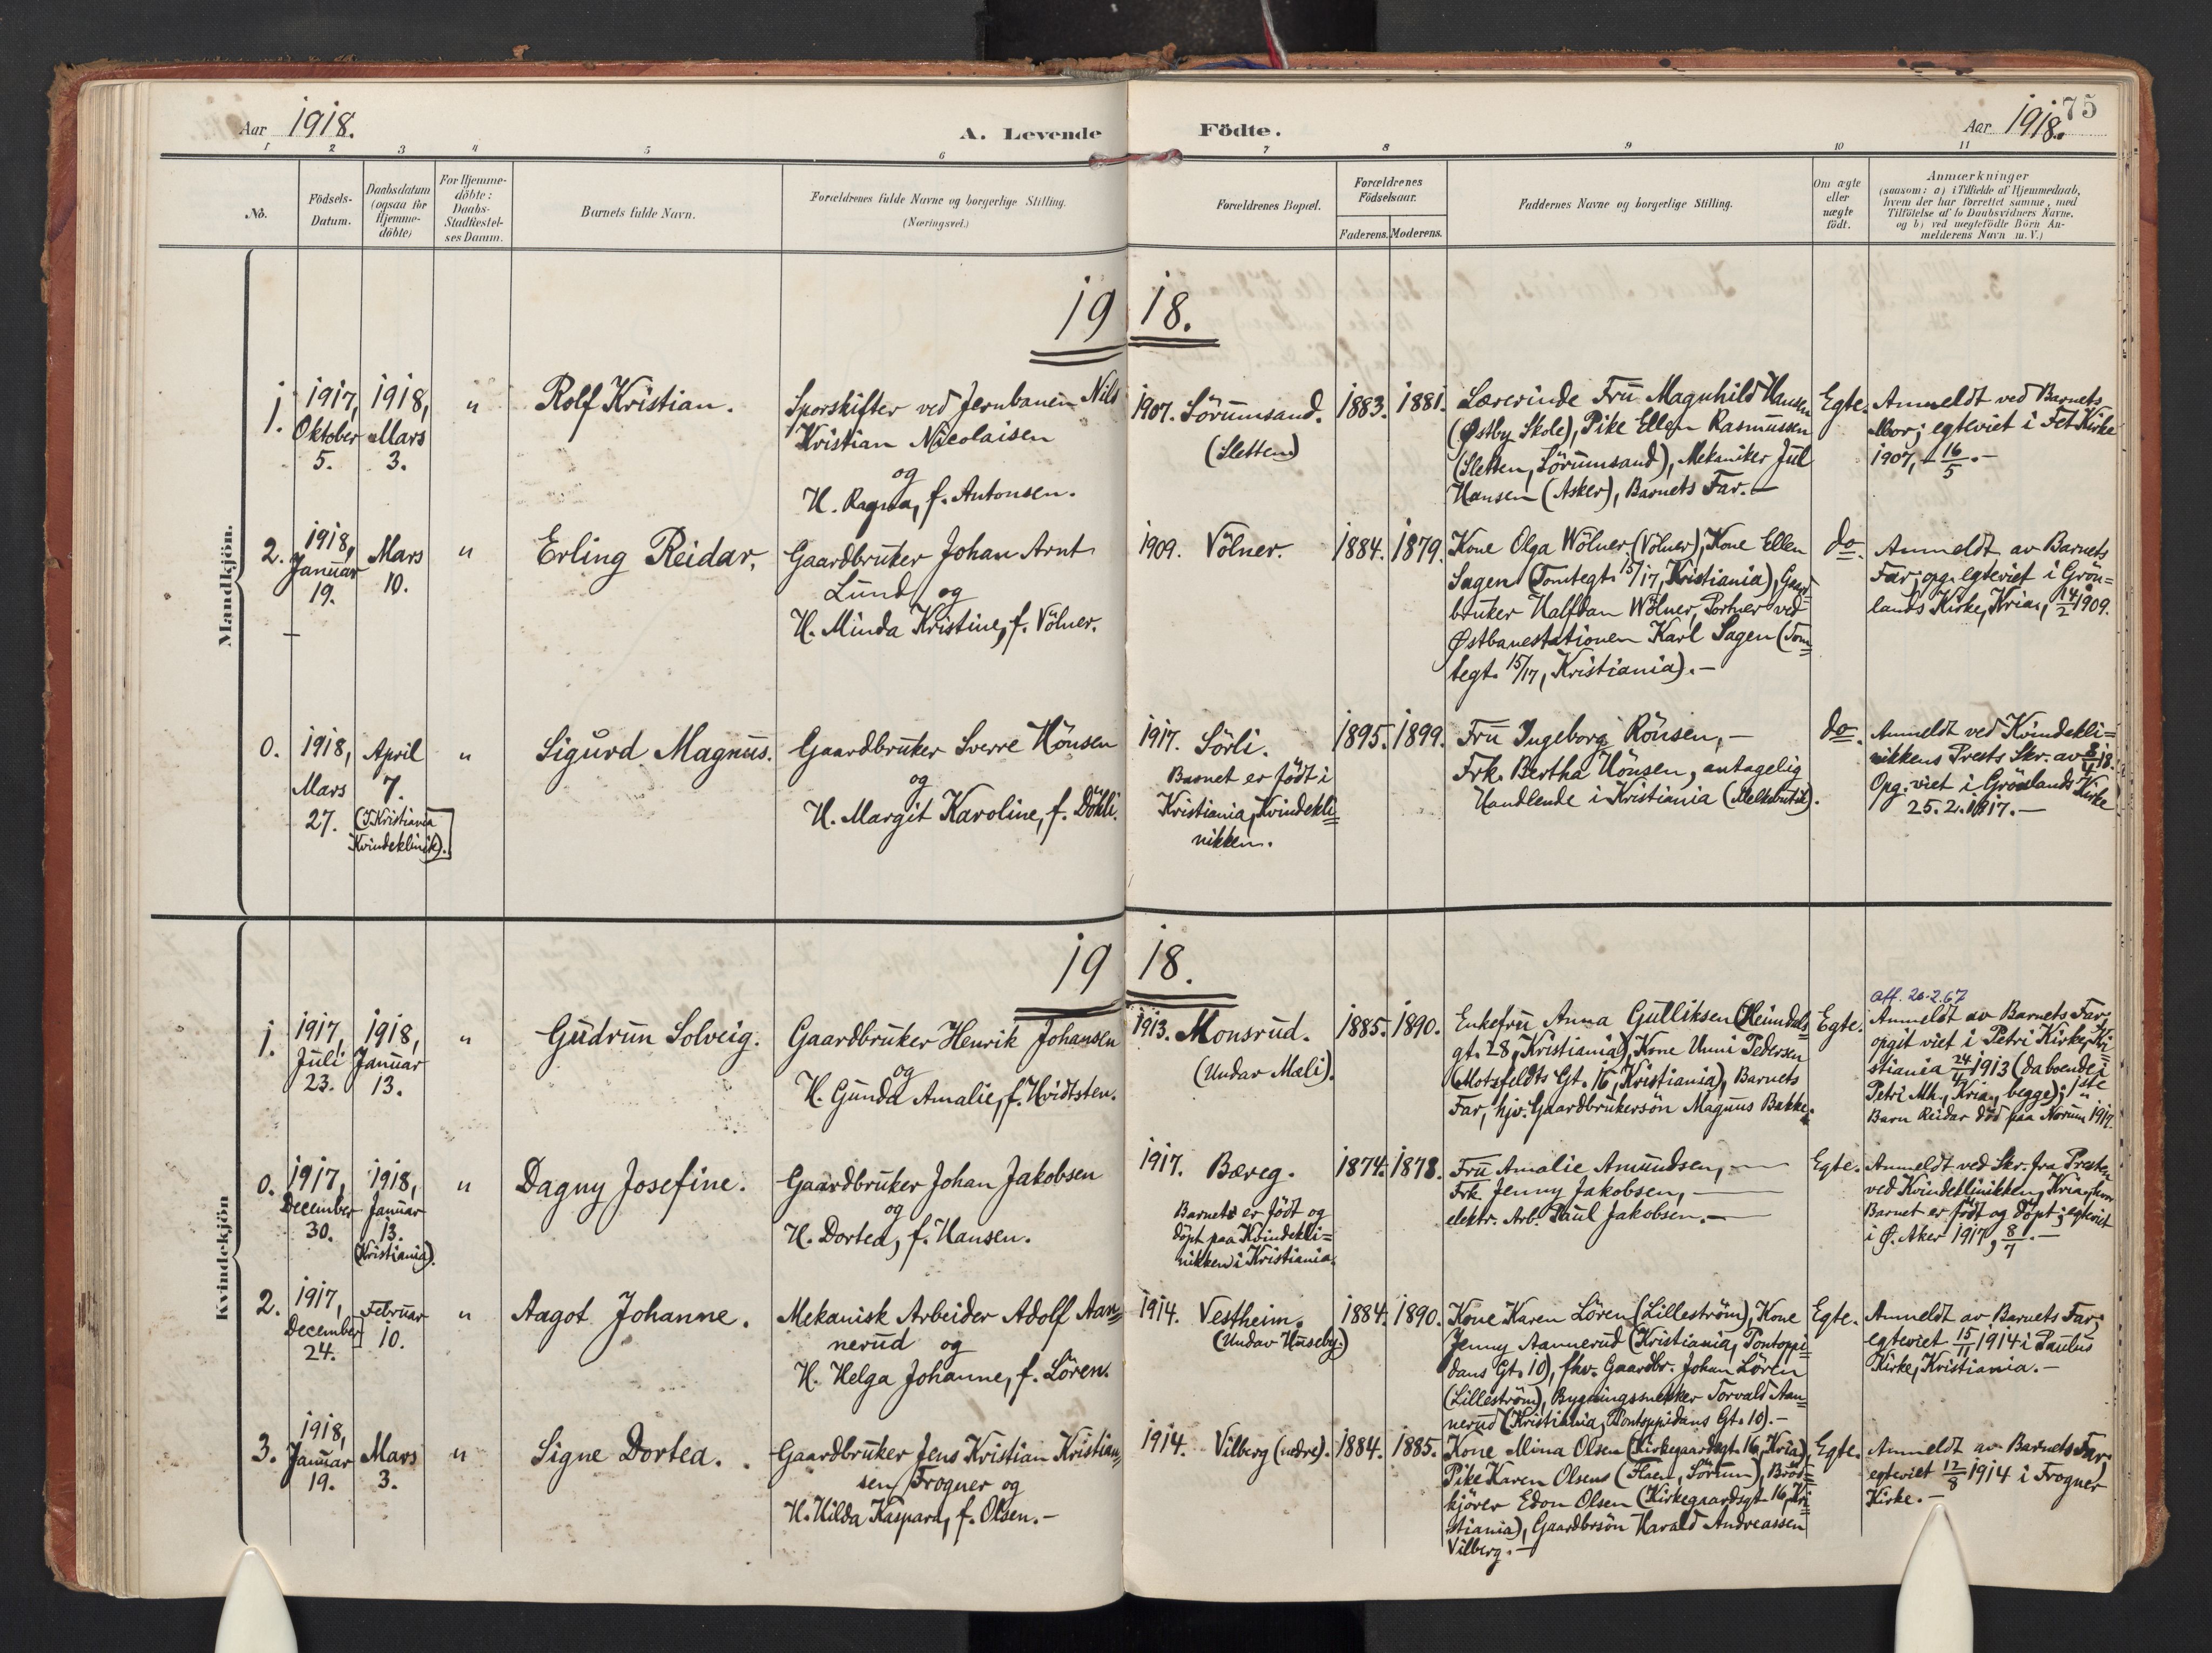 Aar 1918.
A. Levende Födte.
Aar 1918.
75
1 2 3 4 5 6 7 8 9 10 11
No.
Födsels-
Datum.
Daabsdatum
(ogsaa for
Hjemme-
döbte)
For Hjemme-
döbte:
Daabs-
Stadfæstel-
ses Datum.
Barnets fulde Navn.
Forældrenes fulde Navne og borgerlige Stilling.
(Næringsvei.)
Forældrenes Bopæl.
Forældrenes
Födselsaar.
Faderens. Moderens.
Faddernes Navne og borgerlige Stilling.
Om ægte
eller
uægte
födt.
Anmærkninger
(saasom: a) i Tilfælde af Hjemmedaab,
hvem der har forrettet samme, med
Tilföielse af to Daabsvidners Navne,
og b) ved uægtefödte Börn An-
melderens Navn m. V.)
Mandkjön.
1918.
1.
1917,
Oktober
5.
1918,
Mars
3.
"
Rolf Kristian.
Sporskifter ved Jernbanen Nils
Kristian Nicolaisen
og
H. Ragna, f. Antonsen.
1907. Sörumsand.
(Sletten)
1883. 1881.
Lærerinde Fru Magnhild Hansen
(Østby Skole), Pike Ellen Rasmussen
(Sletten, Sörumsand), Mekaniker Jul
Hansen (Asker), Barnets Far. —
Egte.
Anmeldt ved Barnets
Mor; egteviet i Fet Kirke
1907, 16/5. —
2.
1918,
Januar
19.
Mars
10.
"
Erling Reidar.
Gaardbruker Johan Arnt
Lund og
H. Minda Kristine, f. Völner.
1909. Völner.
1884. 1879.
Kone Olga Wölner (Völner), Kone Ellen
Sagen (Tomtegt. 15/17, Kristiania), Gaard-
bruker Halfdan Wölner, Portner ved
Østbanestationen Karl Sagen (Tom=
tegt. 15/17, Kristiania). —
do.
Anmeldt av Barnets
Far; opg. egteviet i Grön=
lands Kirke, Kria., 14/2 1909.
0.
1918,
Mars
27.
April
7.
(I Kristiania
Kvindeklinik).
"
Sigurd Magnus.
Gaardbruker Sverre Hönsen
og
H. Margit Karoline, f. Döhli.
1917. Sörli.
Barnet er födt i
Kristiania, Kvindekli=
nikken.
1895. 1899.
Fru Ingeborg Rönsen, —
Frk. Bertha Hönsen, antagelig
Handlende i Kristiania (Melkebutik).
do.
Anmeldt ved Kvindekli=
nikkens Prests Skr. av 8/4 18.
Opg. viet i Grönlands Kirke
25.2.1917. —
Kvindekjön
1918.
1.
1917,
Juli
23.
1918,
Januar
13.
"
Gudrun Solveig.
Gaardbruker Henrik Johansen
og
H. Gunda Amalie, f. Hvidtsten.
1913. Monsrud.
(Undar Mæli).
1885. 1890.
Enkefru Anna Gulliksen (Heimdals
gt. 28, Kristiania), Kone Unni Pedersen
(Motzfeldts Gt. 16, Kristiania), Barnets
Far, hjv. Gaardbrukersön Magnus Bakke.
Egte.
Aff. 20-2.67
Anmeldt av Barnets Far;
opgit viet i Petri Kirke, Kri=
stiania 24/4 1913 (da boende i
Petri Mh., Kria., begge); 1ste
Barn Reidar död paa Horum 1917.
0.
1917,
December
30.
1918,
Januar
13.
(Kristiania).
"
Dagny Josefine.
Gaardbruker Johan Jakobsen
og
H. Dortea, f. Hansen.
1917. Bæreg.
Barnet er födt og
döpt paa Kvindekli=
nikken i Kristiania.
1874. 1878.
Fru Amalie Amundsen, —
Frk. Jenny Jakobsen, —
elektr. Arb. Paul Jakobsen. —
Egte.
Anmeldt ved Skr. fra Presten
ved Kvindeklinikken, Kria., hvor
Barnet er födt og döpt; egteviet
i Ø. Aker 1917, 8/7. —
2.
1917,
December
24.
Februar
10.
"
Aagot Johanne.
Mekanisk Arbeider Adolf Aan=
nerud og
H. Helga Johanne, f. Lören.
1914. Vestheim.
(Undav Huseby.)
1884. 1890.
Kone Karen Lören (Lilleström), Kone
Jenny Aannerud (Kristiania, Pontoppi=
dans Gt. 10), fhv. Gaardbr. Johan Lören
(Lilleström), Bygningssnekker Torvald Aan=
nerud (Kristiania, Pontoppidans Gt. 10). —
Egte.
Anmeldt av Barnets Far;
egteviet 15/11 1914 i Paulus
Kirke, Kristiania. —
3.
1918,
Januar
19.
Mars
3.
"
Signe Dortea.
Gaardbruker Jens Kristian Kristian=
sen Frogner og
H. Hilda Kaspara, f. Olsen. —
1914. Vilberg (nedre).
1884. 1885.
Kone Mina Olsen (Kirkegaardsgt. 16, Kria),
Pike Karen Olsens (Flaen, Sörum), Bröd=
kjörer Edon Olsen (Kirkegaardsgt. 16, Kri=
stiania), Gaardbrsön Harald Andreassen
Vilberg. —
Egte.
Anmeldt av Barnets Far;
egteviet 12/8 1914 i Frogner
Kirke. —